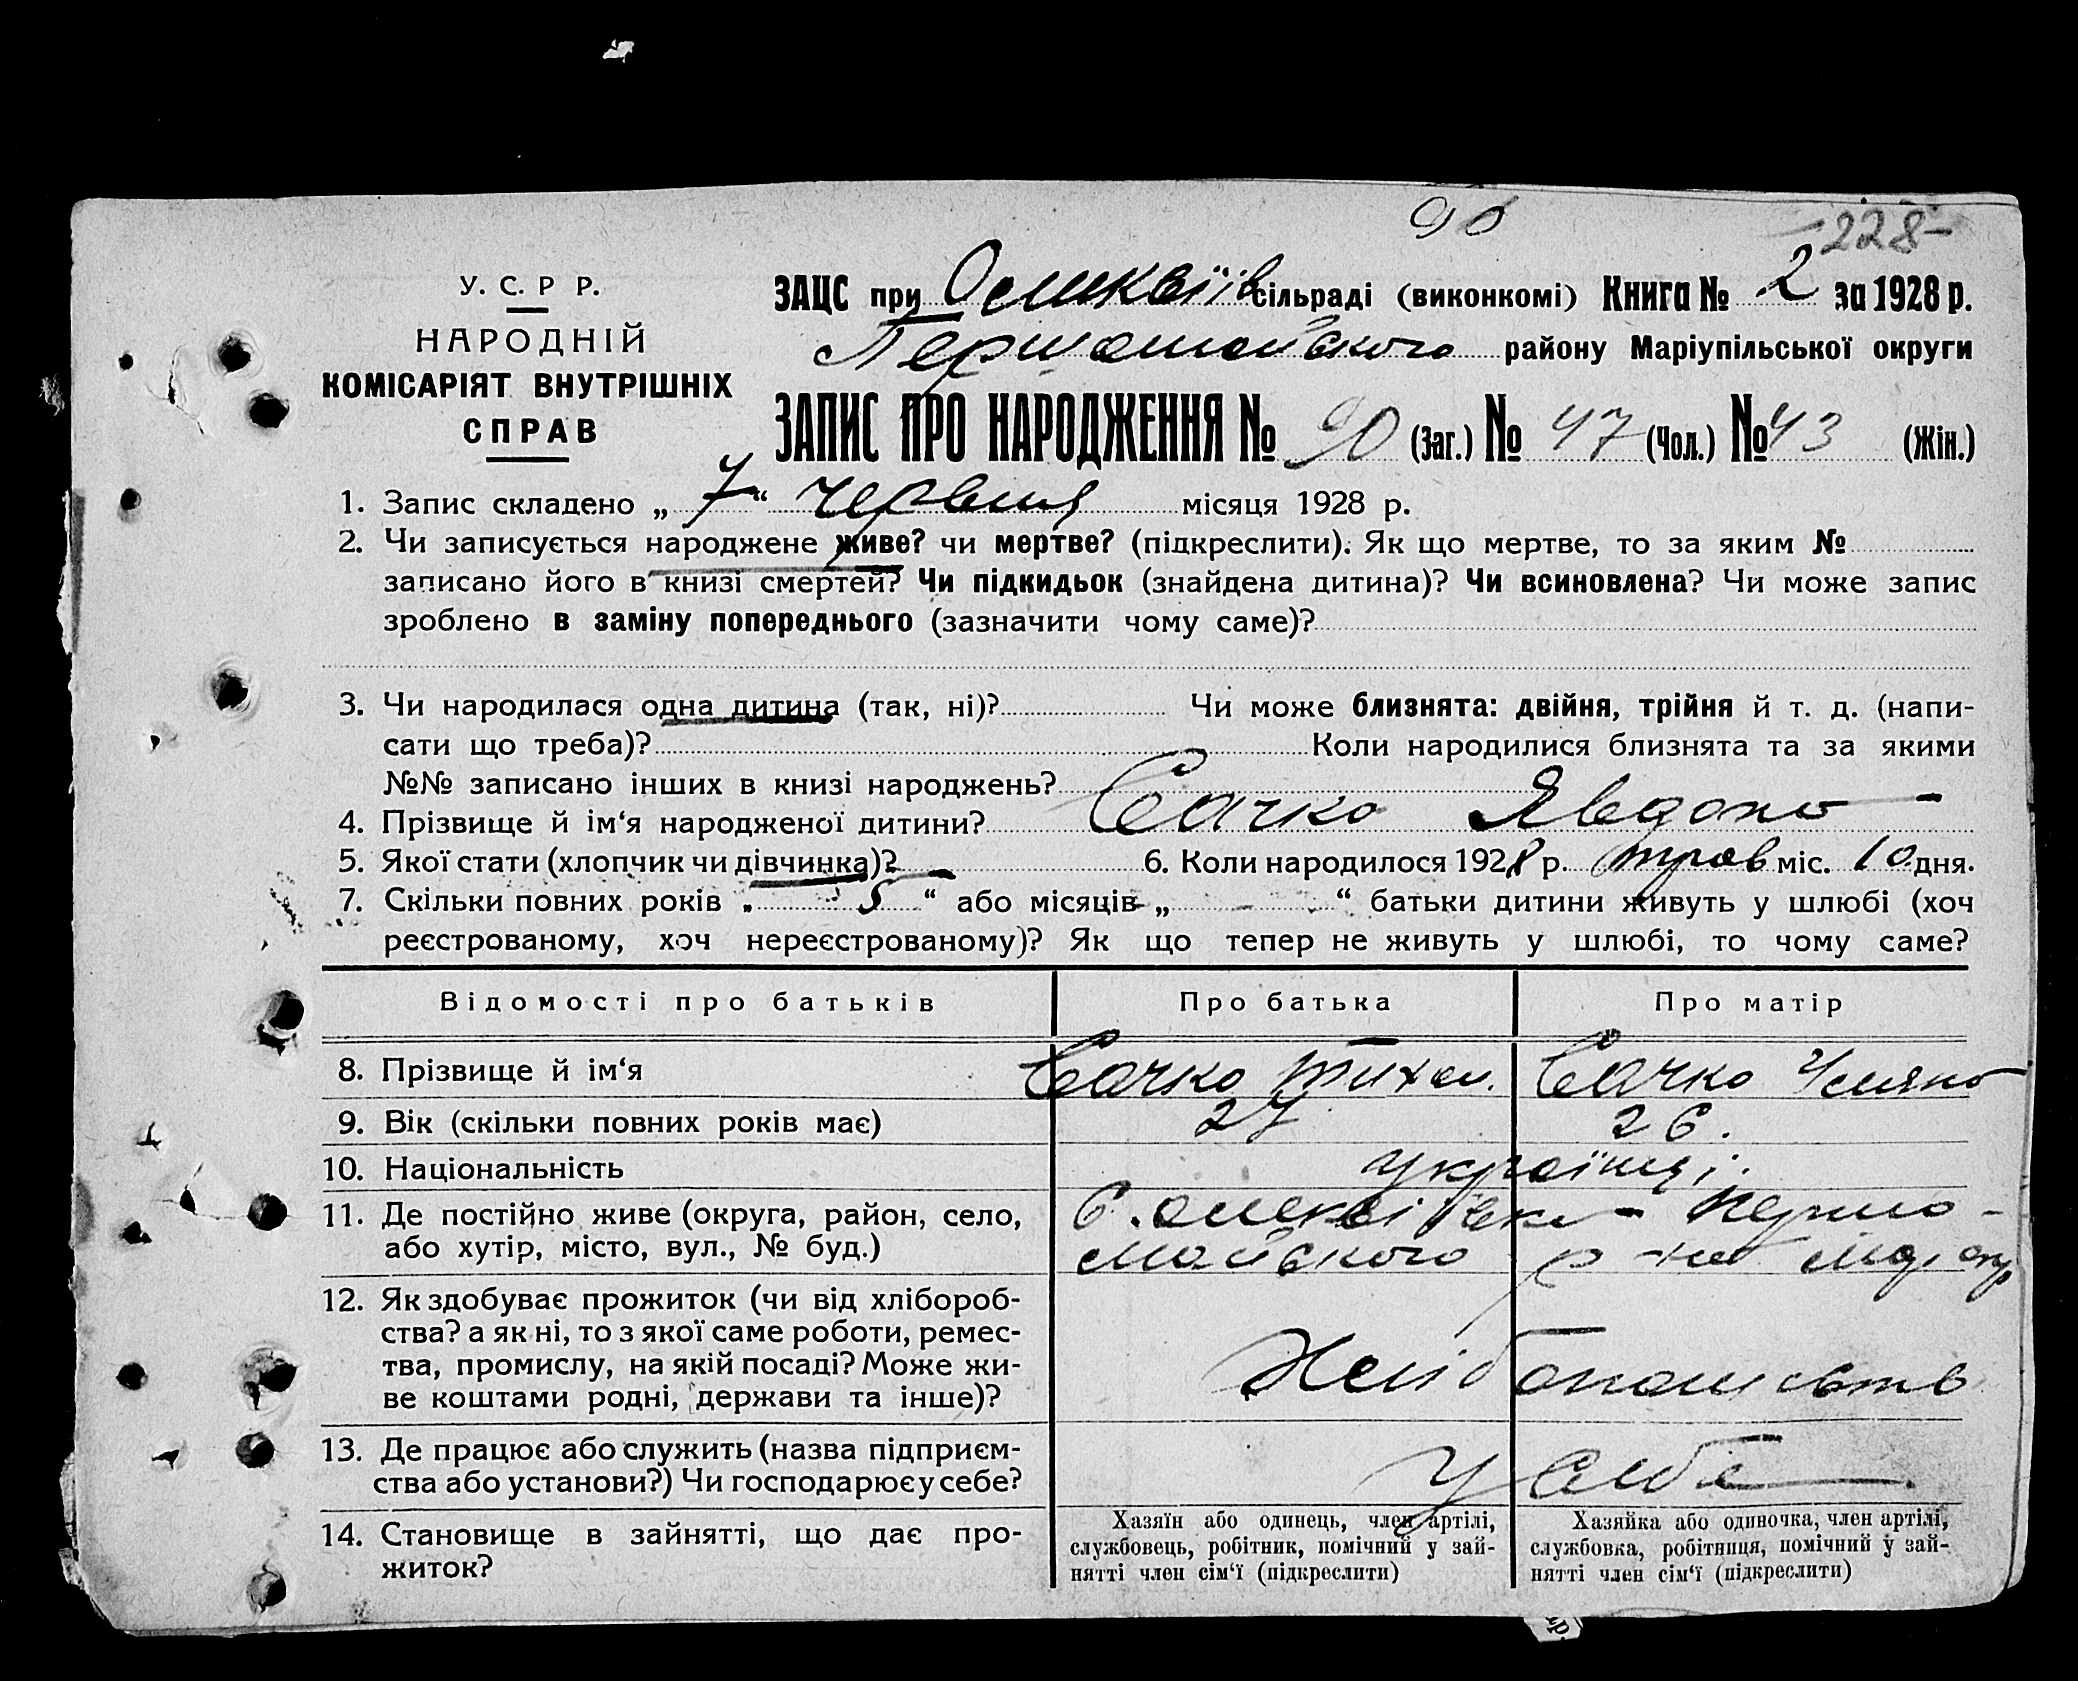 90
228-
У. С. Р Р.
НАРОДНІЙ
КОМІСАРІЯТ ВНУТРІШНІХ
СПРАВ
ЗАЦС при сільраді (виконкомі) Книга № 2 за 1928 р.
Першомайского району Маріупільської округи
ЗАПИС ПРО НАРОДЖЕННЯ № 90 (Заг.) № 47 (Чол.) № 43 (Жін.)
1. Запис складено „ 7 “ червня місяця 1928 р.
2. Чи записується народжене живе? чи мертве? (підкреслити). Як що мертве, то за яким №
записано його в книзі смертей? Чи підкидьок (знайдена дитина)? Чи всиновлена? Чи може запис
зроблено в заміну попереднього (зазначити чому саме)?
3. Чи народилася одна дитина (так, ні)? Чи може близнята: двійня, трійня й т. д. (напи-
сати що треба)? Коли народилися близнята та за якими
№№ записано інших в книзі народжень?
4. Прізвище й ім‘я народженої дитини? Сачко Явдоха
5. Якої стати (хлопчик чи дівчинка)? — 6. Коли народилося 1928 р. трав міс. 10 дня.
7. Скільки повних років „ 5 “ або місяців „ - “ батьки дитини живуть у шлюбі (хоч
реєстрованому, хоч нереєстрованому)? Як що тепер не живуть у шлюбі, то чому саме?
Відомості про батьків Про батька Про матір
8. Прізвище й ім‘я Сачко Тихон. Сачко Уляна
9. Вік (скільки повних років має) 27 26.
10. Національність українці.
11. Де постійно живе (округа, район, село, с. Першо-
або хутір, місто, вул., № буд.) майского р-на Мар окр
12. Як здобуває прожиток (чи від хлібороб-
ства? а як ні, то з якої саме роботи, ремес-
тва, промислу, на якій посаді? Може жи-
ве коштами родні, держави та інше)?
13. Де працює або служить (назва підприєм-
ства або установи?) Чи господарює у себе? У себе
14. Становище в зайнятті, що дає про-
житок?
Хазяїн або одинець, член артілі,
службовець, робітник, помічний у зай-
нятті член сім‘ї (підкреслити)
Хазяйка або одиночка, член артілі,
службовка, робітниця, помічний у зай-
нятті член сім‘ї (підкреслити)